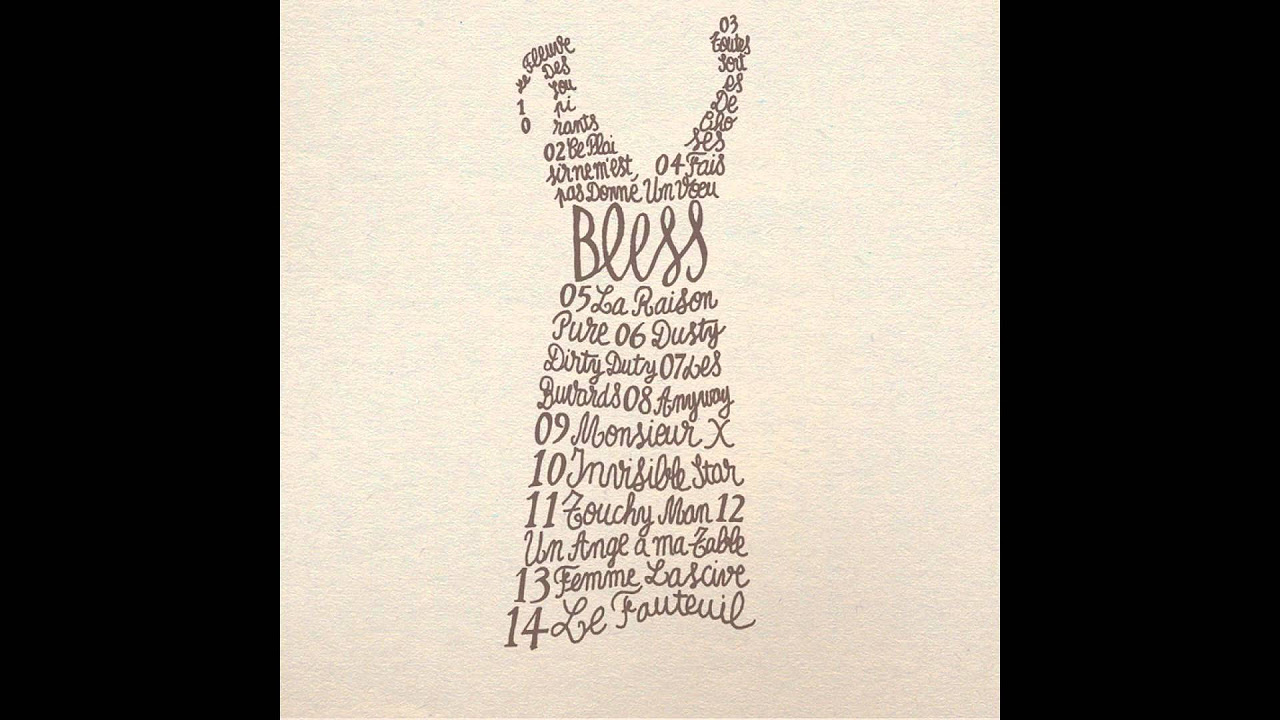 10
Le Fleuve
Des
Sou
pi
rants
02 Ce Plai
sir ne m'est,
pas Donné
03
Toutes
Sort
es
De
Cho
ses
04 Fais
Un Voeu
Bless
05 La Raison
Pure 06 Dusty
Dirty Duty 07 Les
Buvards 08 Anyway
09 Monsieur X
10 Invisible Star
11 Touchy Man 12
Un Ange à ma Table
13 Femme Lascive
14 Le Fauteuil